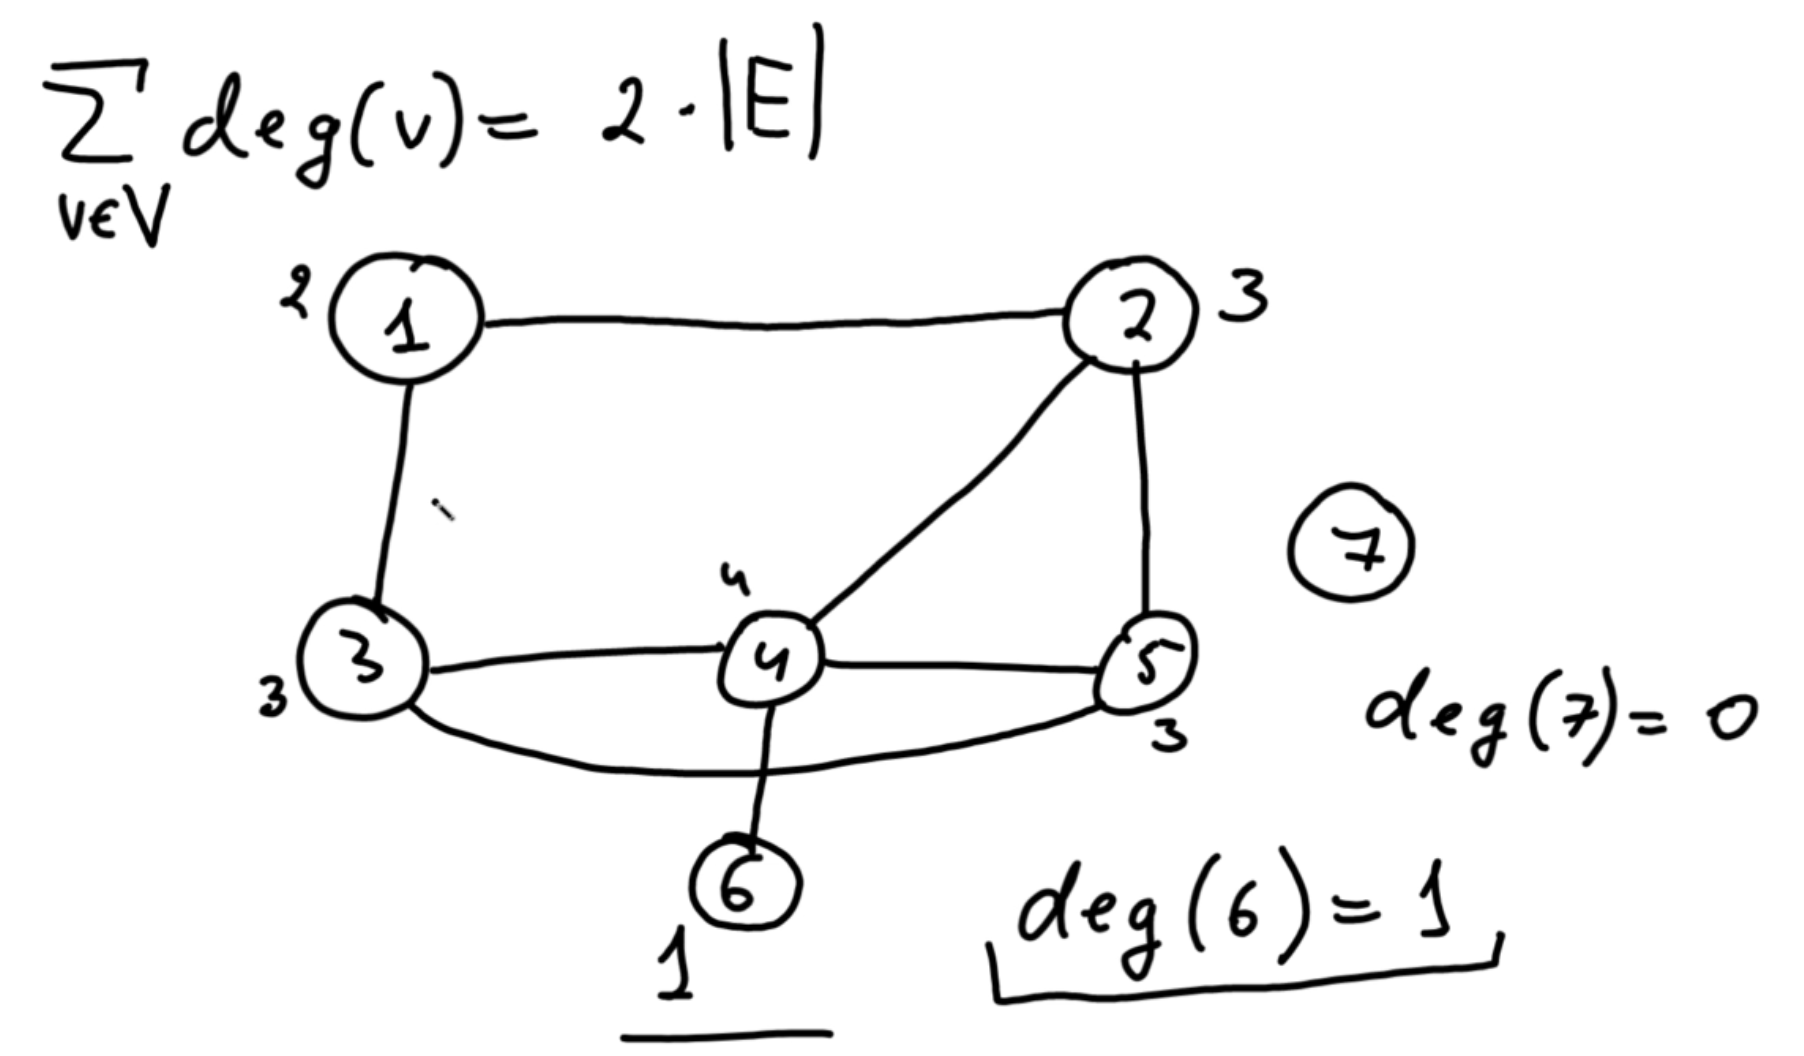 ∑ deg(v) = 2 · |E|
v∈V
2
1
2
3
7
4
3
4
5
3
3
deg(7) = 0
6
deg(6) = 1
1